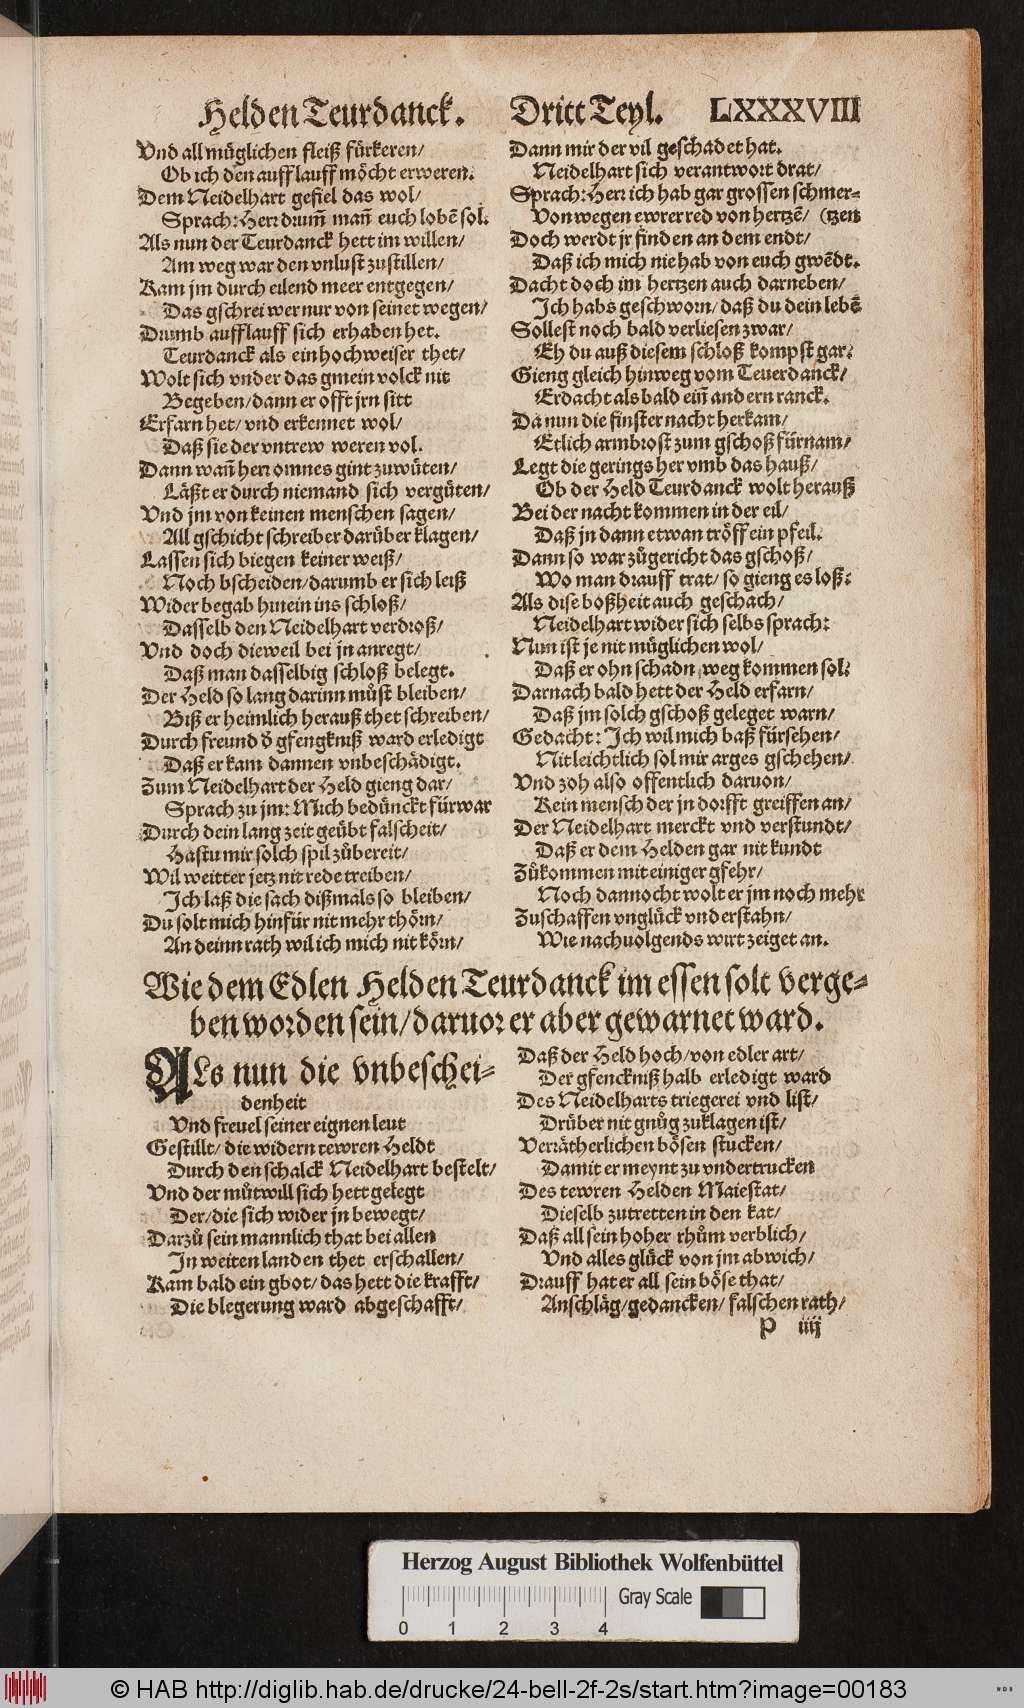 Helden Teurdanck. Dritt Teyl. LXXXVIII
Vnd all müglichen fleiß fürkeren/
Ob ich den aufflauff möcht erweren.
Dem Neidelhart gefiel das wol/
Sprach: Herr drum̃ mañ euch lobẽ sol.
Als nun der Teurdanck hett im willen/
Am weg war den vnlust zustillen/
Kam jm durch eilend meer entgegen/
Das gschrei wer nur von seinet wegen/
Drumb aufflauff sich erhaben het.
Teurdanck als ein hochweiser thet/
Wolt sich vnder das gmein volck nit
Begeben/ dann er offt jrn sitt
Erfarn het/ vnd erkennet wol/
Daß sie der vntrew weren vol.
Dann wañ herr omnes gint zuwüten/
Läßt er durch niemand sich vergüten/
Vnd jm von keinen menschen sagen/
All gschicht schreiber darüber klagen/
Lassen sich biegen keiner weiß/
Noch bscheiden/ darumb er sich leiß
Wider begab hinein ins schloß/
Dasselb den Neidelhart verdroß/
Vnd doch dieweil bei jn anregt/
Daß man dasselbig schloß belegt.
Der Held so lang darinn můst bleiben/
Biß er heimlich herauß thet schreiben/
Durch freund d̃ gfengkniß ward erledigt
Daß er kam dannen vnbeschädigt.
Zum Neidelhart der Held gieng dar/
Sprach zu jm: Mich bedünckt fürwar
Durch dein lang zeit geübt falscheit/
Hastu mir solch spil zůbereit/
Wil weitter jetz nit rede treiben/
Ich laß die sach dißmals so bleiben/
Du solt mich hinfür nit mehr thörn/
An deinn rath wil ich mich nit körn/
Dann mir der vil geschadet hat.
Neidelhart sich verantwort drat/
Sprach: Herr ich hab gar grossen schmer-
Von wegen ewrer red von hertzẽ/ (tzen
Doch werdt jr finden an dem endt/
Daß ich mich nie hab von euch gwẽdt.
Dacht doch im hertzen auch darneben/
Ich habs geschworn/ daß du dein lebẽ
Sollest noch bald verliesen zwar/
Eh du auß diesem schloß kompst gar:
Gieng gleich hinweg vom Teuerdanck/
Erdacht als bald eiñ andern ranck.
Da nun die finster nacht herkam/
Etlich armbrost zum gschoß fürnam/
Legt die gerings her vmb das hauß/
Ob der Held Teurdanck wolt herauß
Bei der nacht kommen in der eil/
Daß jn dann etwan tröff ein pfeil.
Dann so war zůgericht das gschoß/
Wo man drauff trat/ so gieng es loß:
Als dise boßheit auch geschach/
Neidelhart wider sich selbs sprach:
Nun ist je nit müglichen wol/
Daß er ohn schadn weg kommen sol:
Darnach bald hett der Held erfarn/
Daß jm solch gschoß geleget warn/
Gedacht: Ich wil mich baß fürsehen/
Nit leichtlich sol mir arges gschehen/
Vnd zoh also offentlich daruon/
Kein mensch der jn dorfft greiffen an/
Der Neidelhart merckt vnd verstundt/
Daß er dem Helden gar nit kundt
Zůkommen mit einiger gfehr/
Noch dannocht wolt er jm noch mehr
Zuschaffen vnglück vnderstahn/
Wie nachuolgends wirt zeiget an.
Wie dem Edlen Helden Teurdanck im essen solt verge-
ben worden sein/ daruor er aber gewarnet ward.
ALs nun die vnbeschei-
denheit
Vnd freuel seiner eignen leut
Gestillt/ die widern tewren Heldt
Durch den schalck Neidelhart bestelt/
Vnd der můtwill sich hett gelegt
Der/ die sich wider jn bewegt/
Darzů sein mannlich that bei allen
In weiten landen thet erschallen/
Kam bald ein gbot/ das hett die krafft/
Die blegerung ward abgeschafft/
Daß der Held hoch/ von edler art/
Der gfenckniß halb erledigt ward
Des Neidelharts triegerei vnd list/
Drüber nit gnůg zuklagen ist/
Verrätherlichen bösen stucken/
Damit er meynt zu vndertrucken
Des tewren Helden Maiestat/
Dieselb zutretten in den kat/
Daß all sein hoher rhům verblich/
Vnd alles glück von jm abwich/
Drauff hat er all sein böse that/
Anschläg/ gedancken/ falschen rath/
P iiij
Herzog August Bibliothek Wolfenbüttel
Gray Scale
0 1 2 3 4
© HAB http://diglib.hab.de/drucke/24-bell-2f-2s/start.htm?image=00183